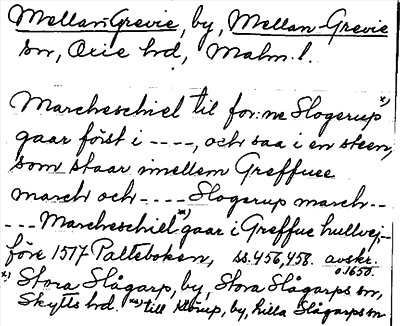 Mellan-Grevie, by, Mellan-Grevie
sn, Oxie hd, Malm. l.
Marcheschiel til for:ne Slogerup x)
gaar först i ----, och saa i en steen,
som staar imellem Greffuee
march och ---- Slogerup march--
--- Marcheschiel xx) gaar i Greffue hullvej--
före 1517 Palteboken, ss. 456, 458. avskr.
o. 1650.
x) Stora Slågarp, by, Stora Slågarps sn,
Skytts hd. xx) till Klörup, by, Lilla Slågarps sn